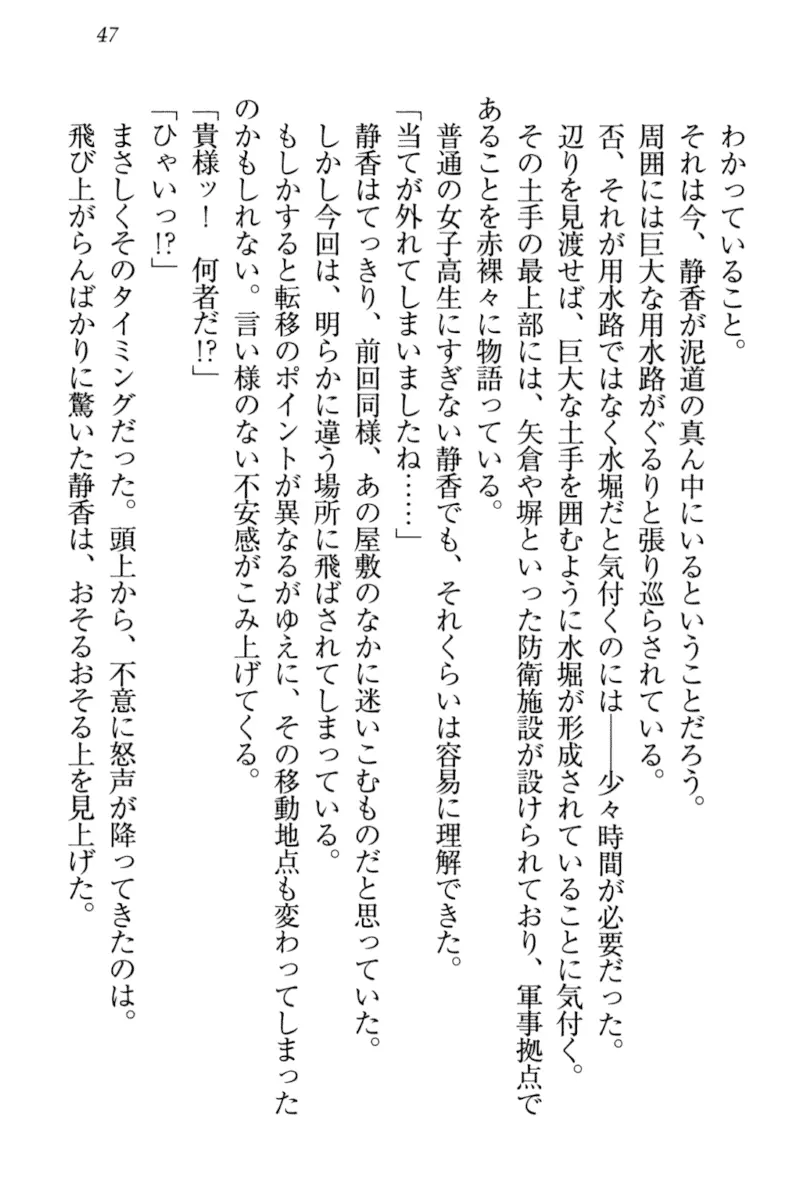 47
わかっていること。
それは今、静香が泥道の真ん中にいるということだろう。
周囲には巨大な用水路がぐるりと張り巡らされている。
否、それが用水路ではなく水堀だと気付くのには――少々時間が必要だった。
辺りを見渡せば、巨大な土手を囲むように水堀が形成されていることに気付く。
その土手の最上部には、矢倉や塀といった防衛施設が設けられており、軍事拠点で
あることを赤裸々に物語っている。
普通の女子高生にすぎない静香でも、それくらいは容易に理解できた。
「当てが外れてしまいましたね……」
静香はてっきり、前回同様、あの屋敷のなかに迷いこむものだと思っていた。
しかし今回は、明らかに違う場所に飛ばされてしまっている。
もしかすると転移のポイントが異なるがゆえに、その移動地点も変わってしまった
のかもしれない。言い様のない不安感がこみ上げてくる。
「貴様ッ！　何者だ!?」
「ひゃいっ!?」
まさしくそのタイミングだった。頭上から、不意に怒声が降ってきたのは。
飛び上がらんばかりに驚いた静香は、おそるおそる上を見上げた。